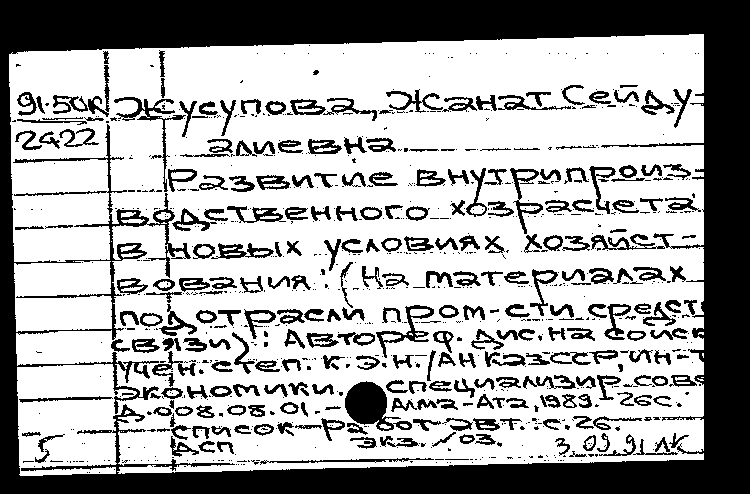 91-50К Жусупова, Жанат Сейду-
2422 алиевна.
Развитие внутрипроиз-
водственного хозрасчета
в новых условиях хозяйст-
вования: (На материалах
подотрасли пром-сти средств
связи): Автореф. дис. на соиск.
учен. степ. к.э.н. / АН КазССР, Ин-т
экономики. специализир. сове
Д.008.08.01. - Алма-Ата, 1989. - 26с.
список работ авт.: с.26.
5 ДСП экз. 03. 3.09.91 ЛК